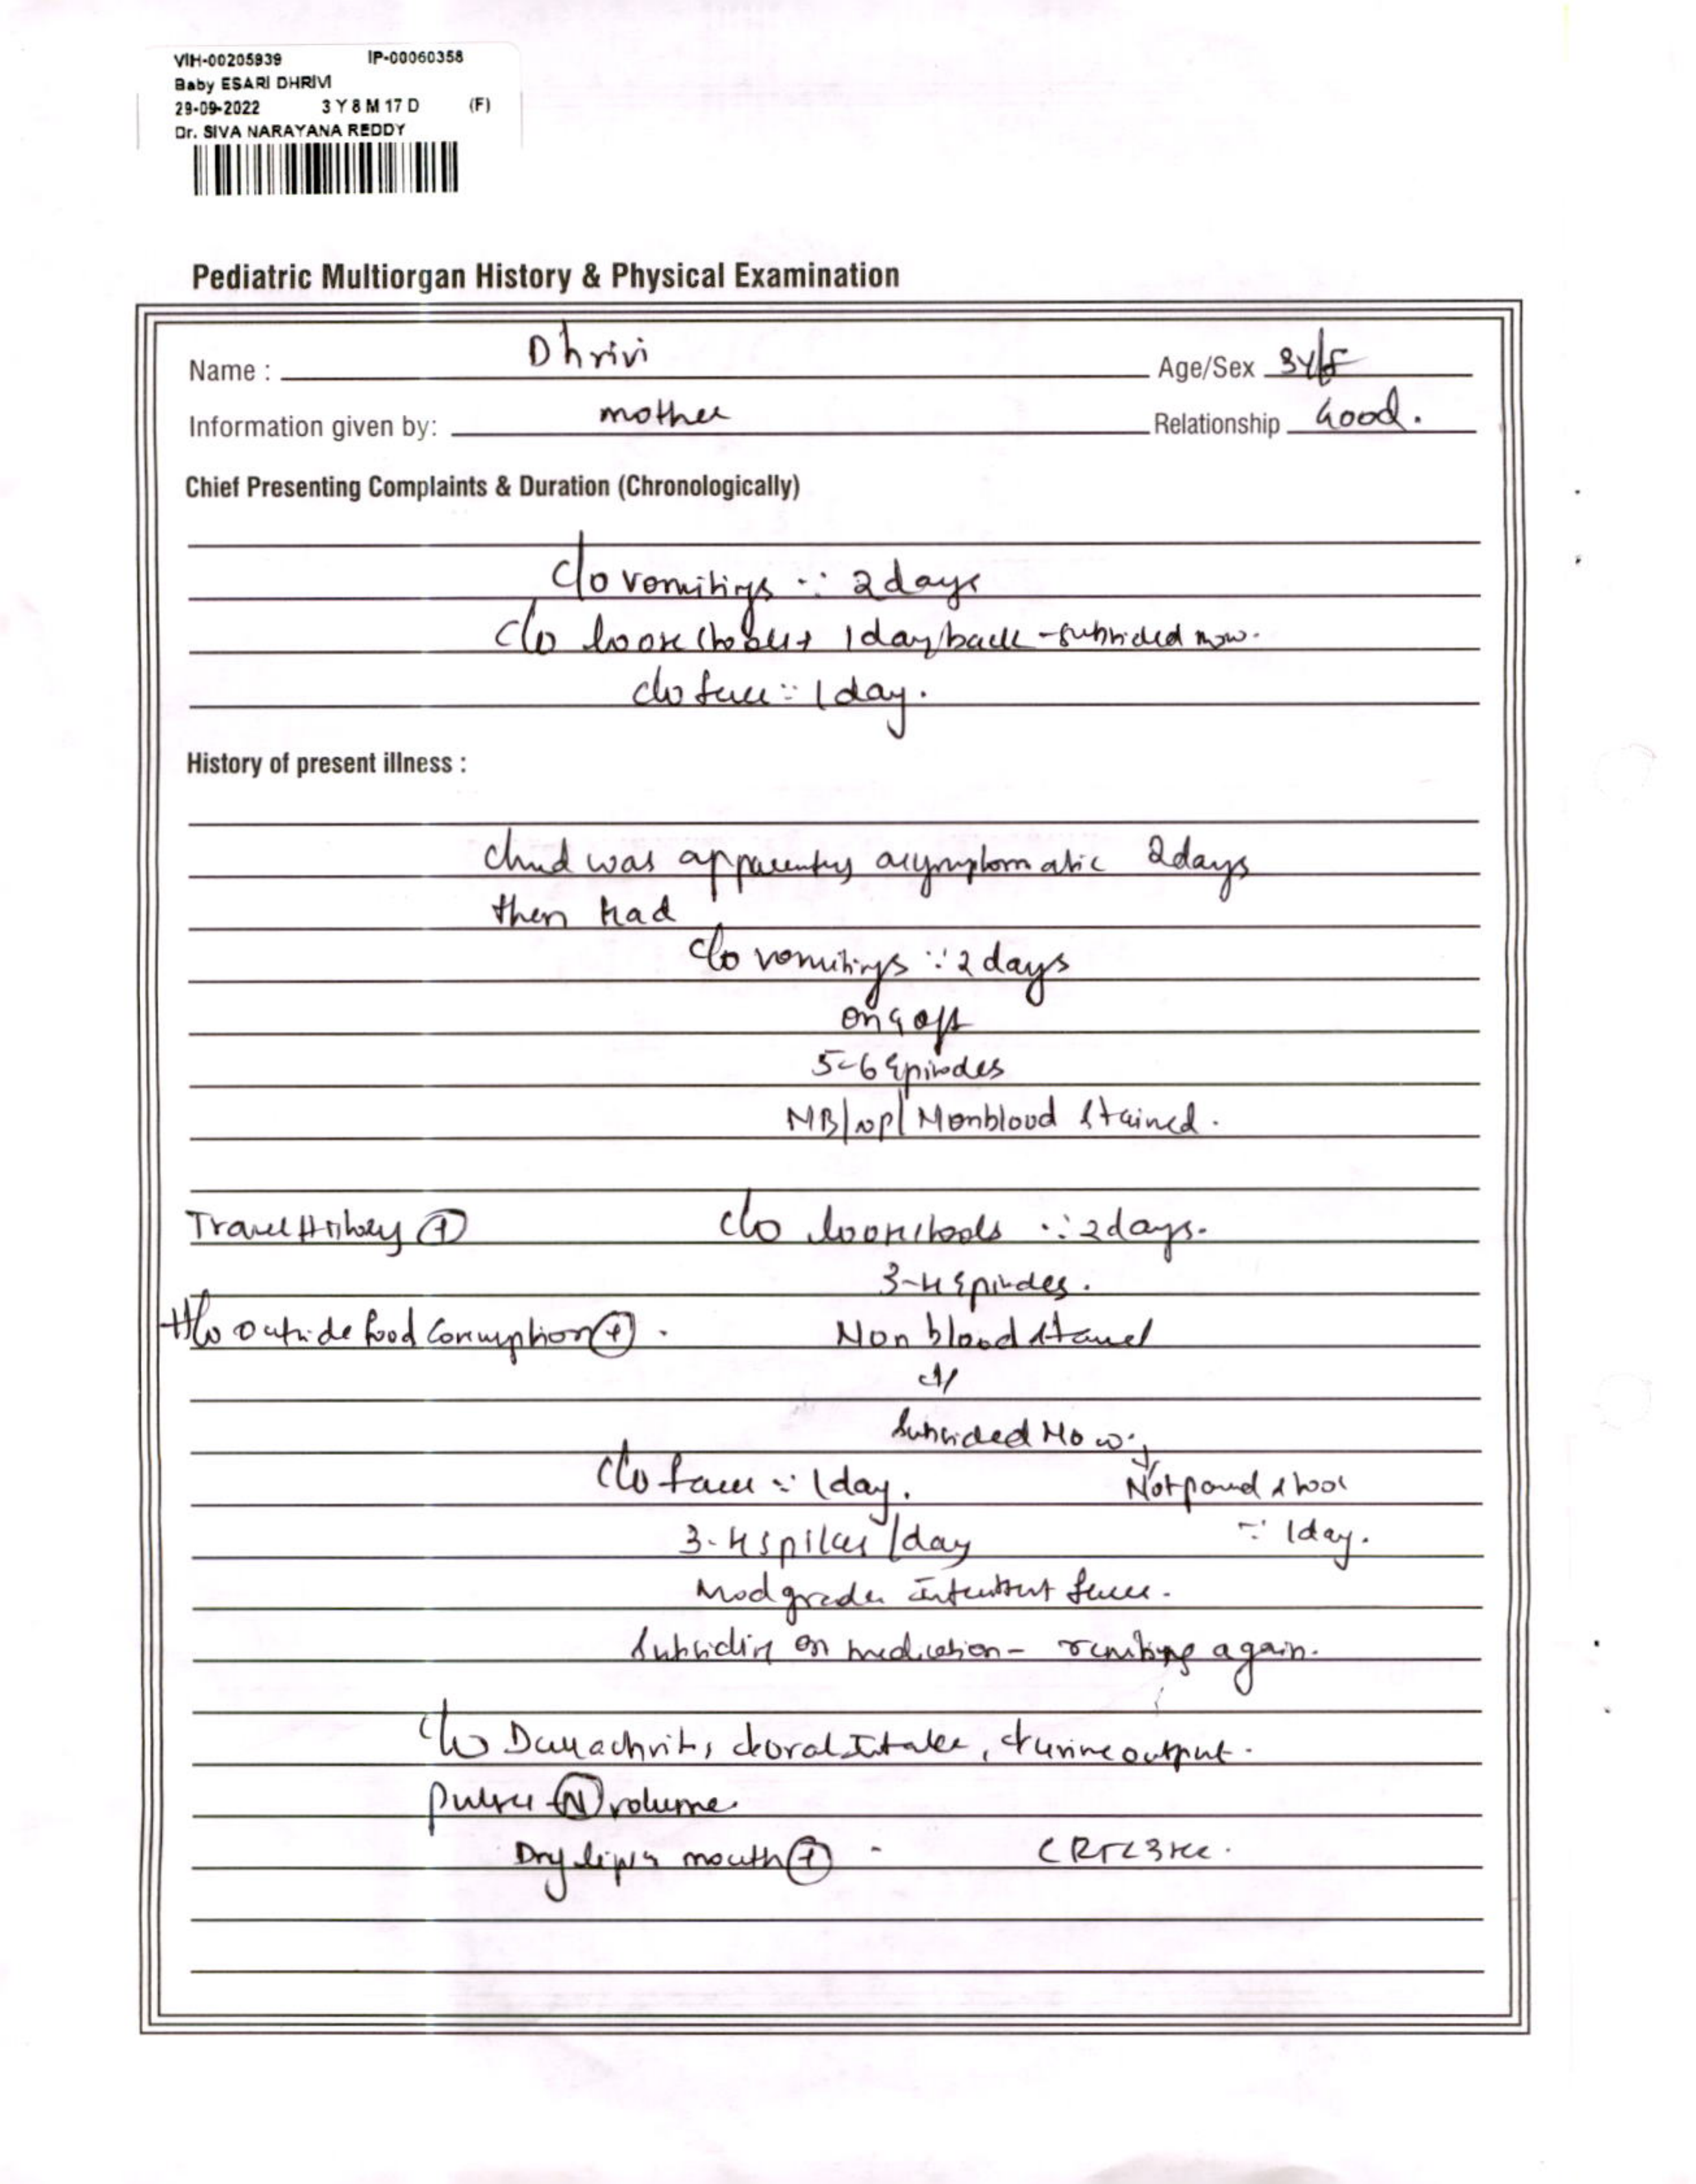 VIH-00205939 IP-00060358
Baby ESARI DHRIVI
29-09-2022 3 Y 8 M 17 D (F)
Dr. SIVA NARAYANA REDDY
Pediatric Multiorgan History & Physical Examination
Name : Dhrivi Age/Sex 3Y/F
Information given by: mother Relationship Good.
Chief Presenting Complaints & Duration (Chronologically)
C/o vomitings ∵ 2 days
C/o loose stools 1 day back - subsided now.
C/o fever ∵ 1 day.
History of present illness :
Child was apparently asymptomatic 2 days
then had
C/o vomitings ∵ 2 days
on & off
5-6 Episodes
NB/NP/ Nonblood stained.
Travel History (+) C/o loose stools ∵ 2 days.
3-4 Episodes.
H/o outside food consumption (+). Non blood stained
Subsided Now.
C/o fever ∵ 1 day. Not passed stool
3-4 spikes /day ∵ 1 day.
Mod grade intermittent fever.
Subsiding on medication - again.
C/o oral Intake, ↓ urine output.
pulse (N) volume
Dry lips & mouth (+) - CRT<3sec.